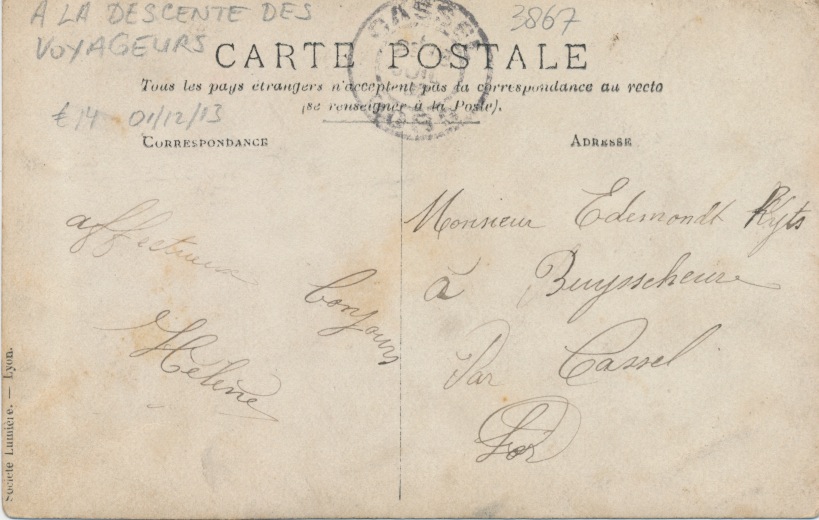 A LA DESCENTE DES
VOYAGEURS
3867
CARTE POSTALE
Tous les pays étrangers n'acceptent pas la correspondance au recto
(se renseigner à la Poste).
€14 01/12/13
CORRESPONDANCE
affectueux
bonjours
Hélène
ADRESSE
Monsieur Edemondt Ryts
à Buysscheure
Par Cassel
Societé Lumière. — Lyon.